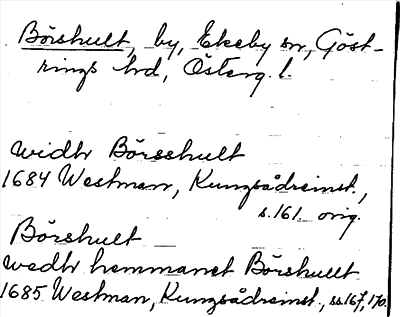 Börshult, by, Ekeby sn, Göst-
rings hd, Österg. l.
widh Börsehult
1684 Westman, Kungsådreinst.,
s.161 orig.
Börshult
wedh hemmanet Börshullt
1685 Westman, Kungsådreinst., ss.167,170.